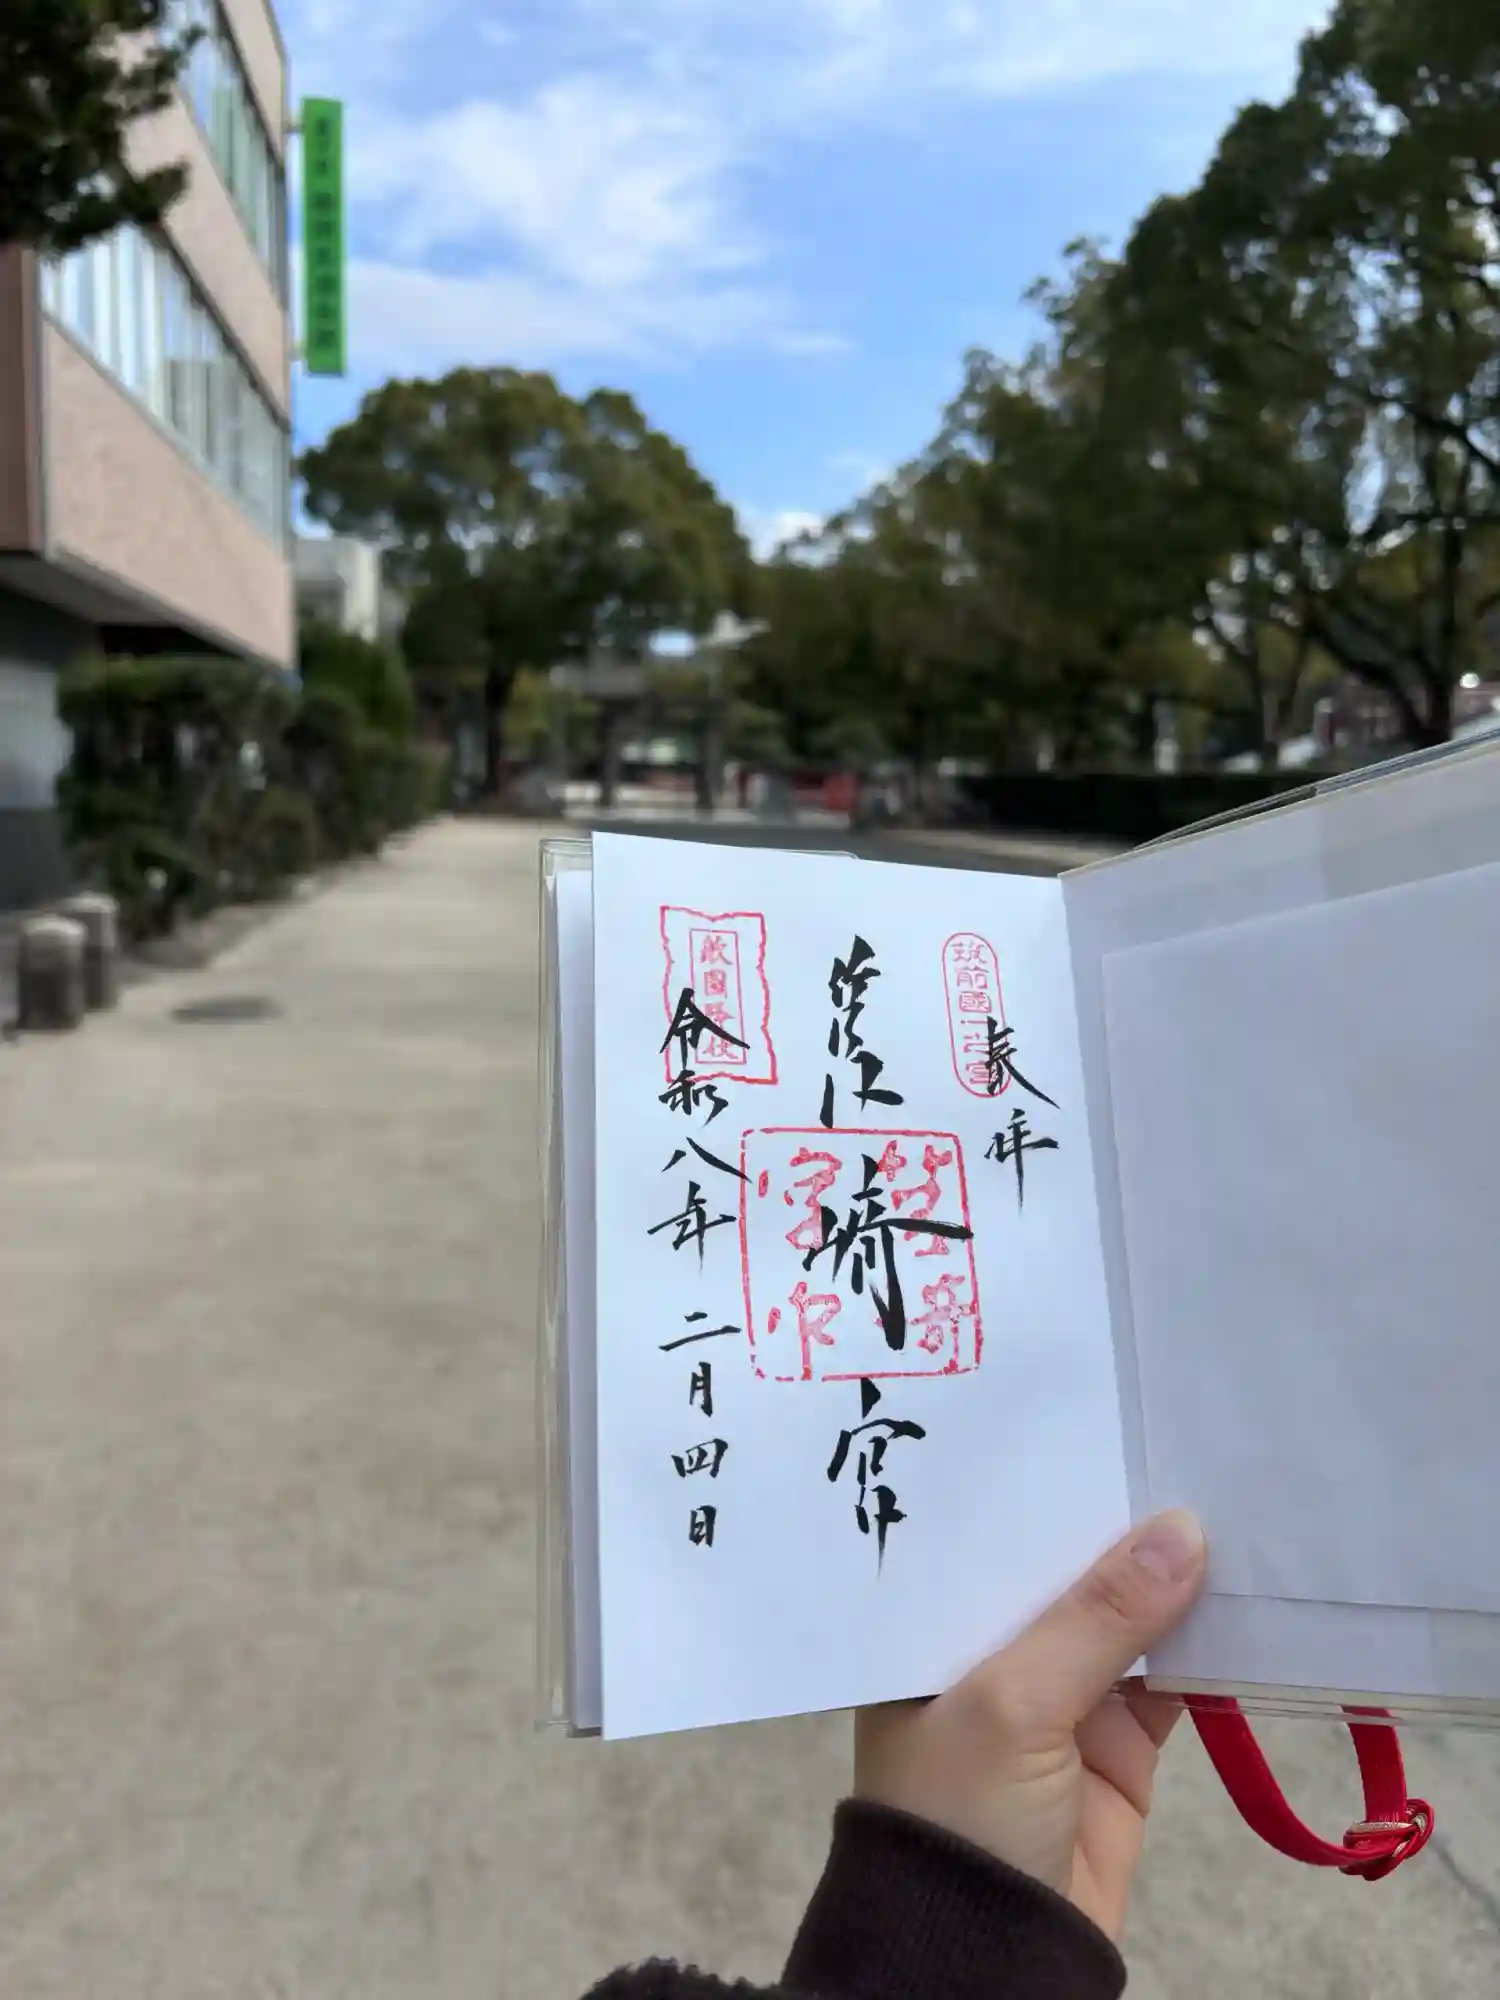 筑前國一之宮
奉拝
筥崎宮
筥崎
宮印
敵國降伏
令和八年二月四日